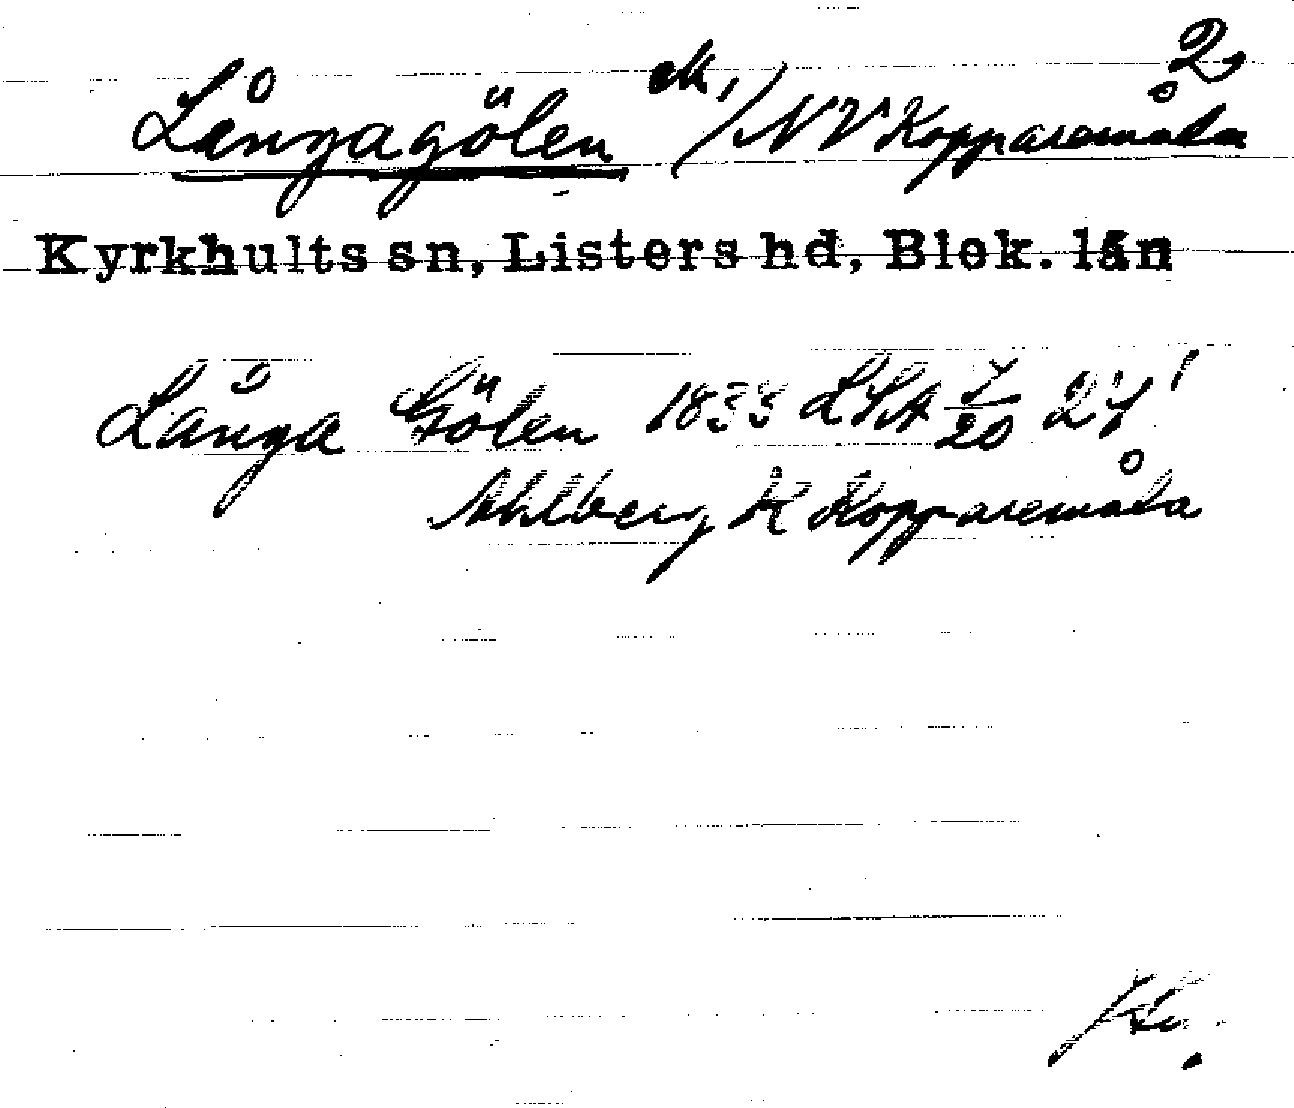 2
Långagölen ek, / NV Kopparemåla
Kyrkhults sn, Listers hd, Blek. län
Långa Gölen 1833 LSA 7/20 27'
Ahlberg K Kopparemåla